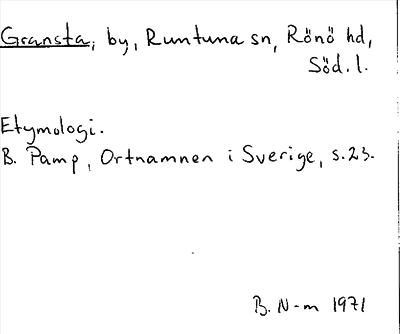 Gransta, by, Runtuna sn, Rönö hd,
Söd. l.
Etymologi.
B. Pamp, Ortnamnen i Sverige, s.23.
B. N-m 1971